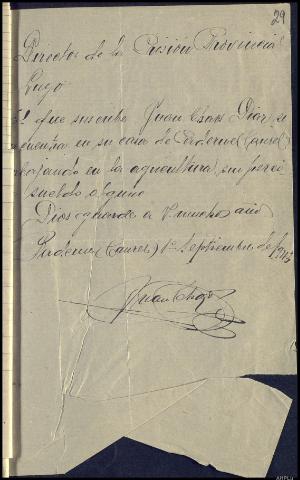 29
Director de la Prisión Provincial
Lugo
El que suscribe Juan Chao Diaz, se
encuentra en su casa de (Caurel)
trabajando en la agricultura, sin percibir
sueldo alguno
Dios guarde a V. muchos años
(Caurel) 1º Septiembre de 1945
Juan Chao
AHPLU